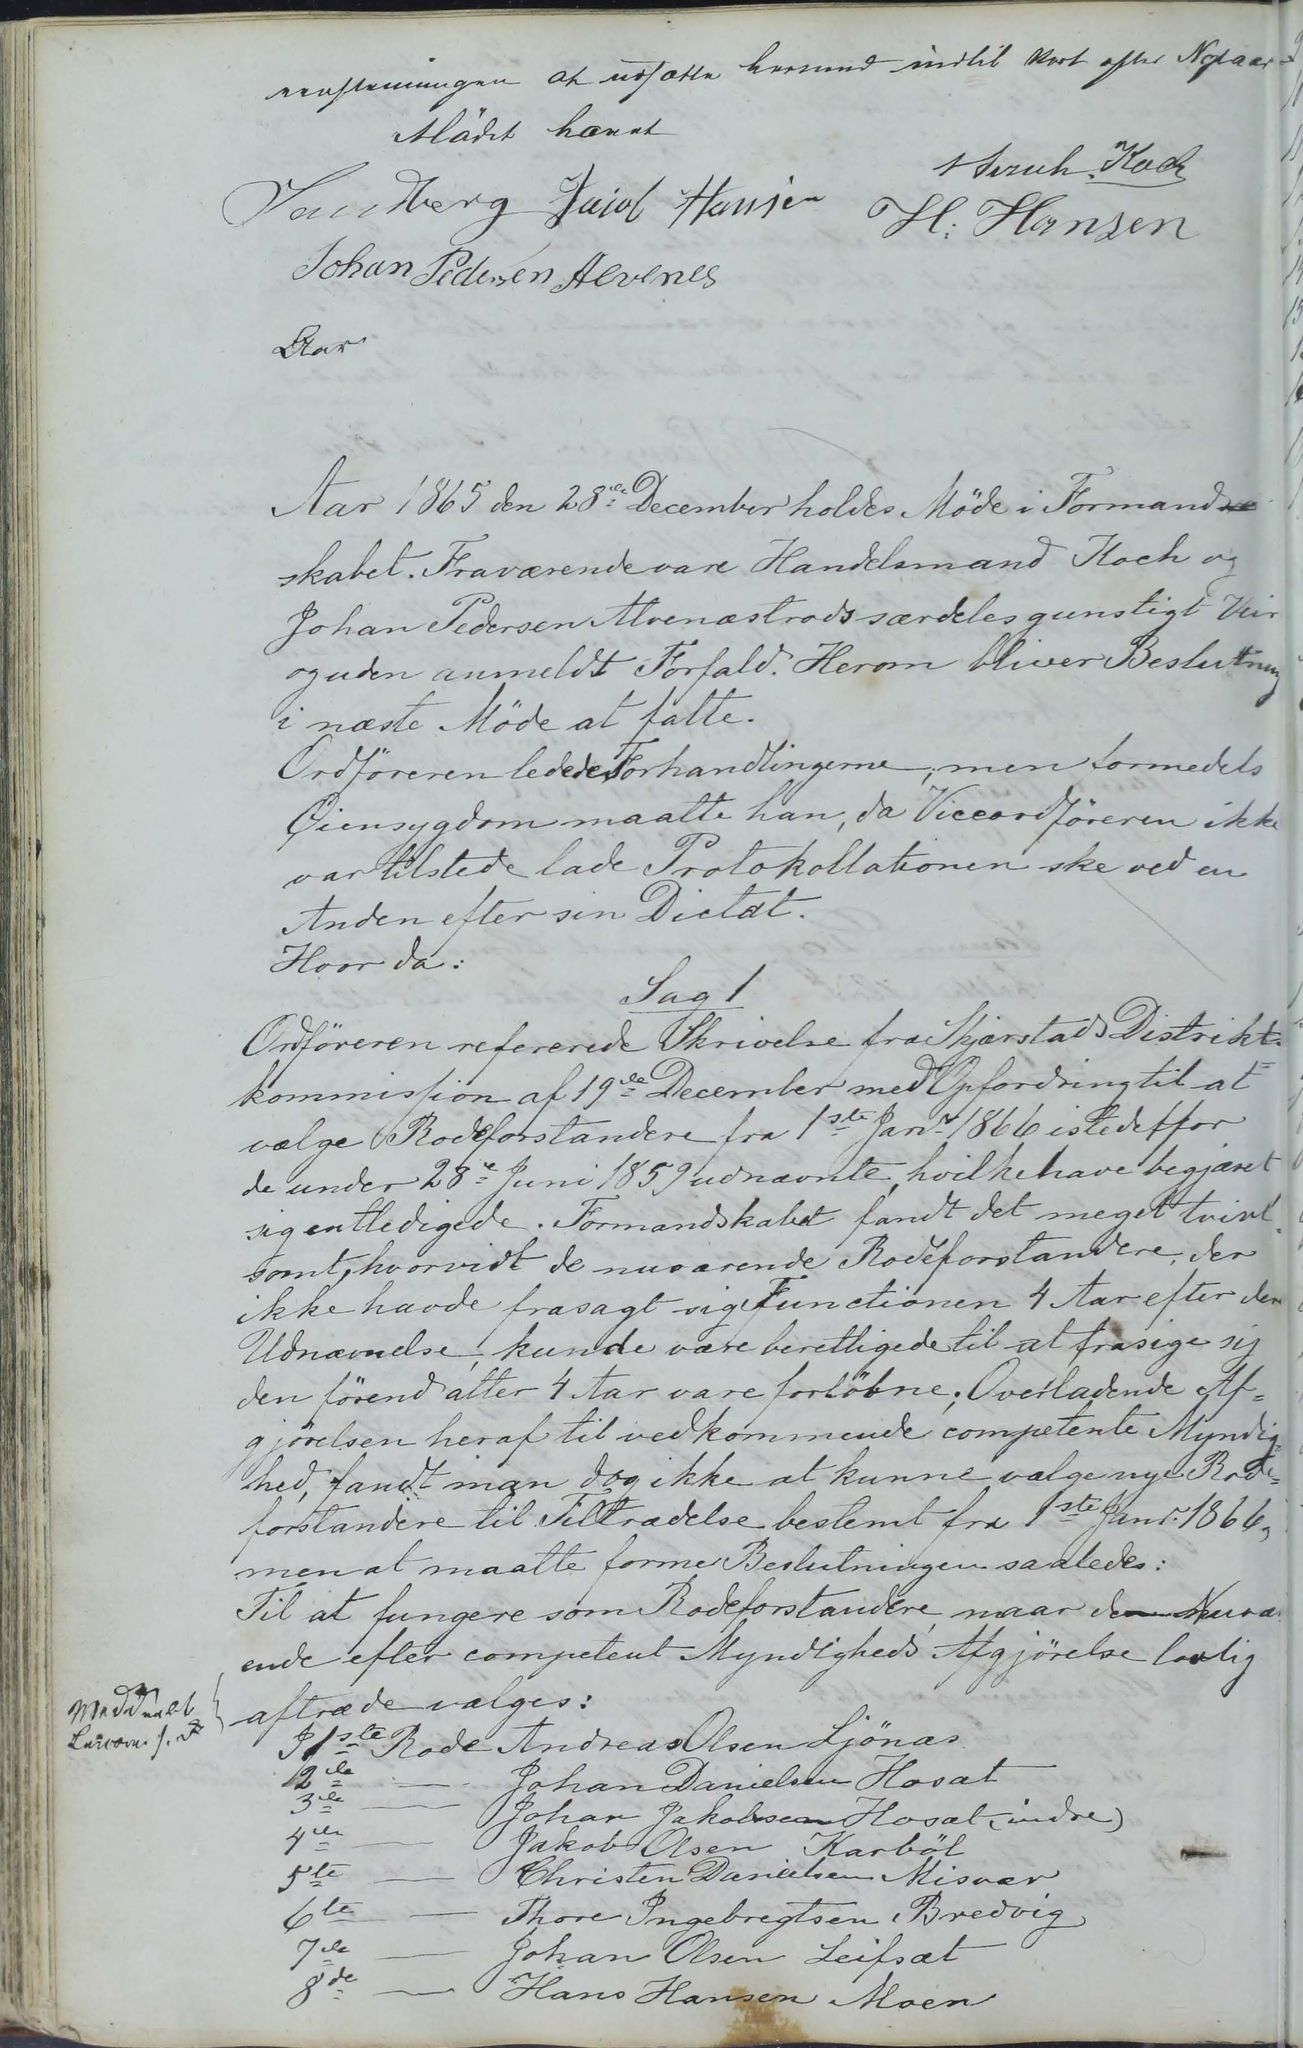 at udsætte herved indtil Kort efter Nytaar
Mödet hævet
Sandberg Jacob Hansen Koch
H: Hansen
Johan Pedersen Alvenes
Aar
Aar 1865 den 28de December holdes Möde i Formand
skabet. Fraværende vare Handelsmand Koch og
Johan Pedersen Alvenæs trods særdeles gunstigt Veir
og uden anmeldt Forfald. Herom bliver Beslutning
i næste Möde at fatte.
Ordföreren ledede Forhandlingerne, men formedels
Öiensygdom maatte han, da Viceordföreren ikke
var tilstede lade Protokollationen ske ved en
Anden efter sin Dictat.
Hvor da:
Sag 1
Ordföreren refererede Skrivelse fra Skjærstads Distrikts-
kommission af 19de December med Opfordring til at
vælge Rodeforstandere fra 1ste Janr 1866 istedetfor
de under 28de Juni 1859 udnævnte, hvilke have begjæret
sig entledigede. Formandskabet fandt det meget tvivl-
somt, hvorvidt de nuværende Rodeforstandere, der
ikke havde frasagt sig Functionen 4 Aar efter der
Udnævnelse, kunde være berettigede til at frasige sig
den förend atter 4 Aar vare forlöbne; Overladende Af-
gjörelsen heraf til vedkommende competente Myndig-
hed, fandt man dog ikke at kunne vælge nye Rode-
forstandere til Tiltrædelse bestemt fra 1ste Janr. 1866,
men at maatte forme Beslutningen saaledes:
Til at fungere som Rodeforstandere, naar de Nuvær
ende efter competent Myndigheds Afgjörelse lovlig
aftræde vælges:
Meddeelt
I 1ste Rode Andreas Olsen Ljönæs
2de — Johan Danielsen Hosæt
3de — Johan Jakobsen Hosæt (indre)
4de — Jakob Olsen Karböl
5te — Christen Danielsen Misvær
6te — Thore Ingebregtsen Bredvig
7de — Johan Olsen Leifsæt
8de — Hans Hansen Moen